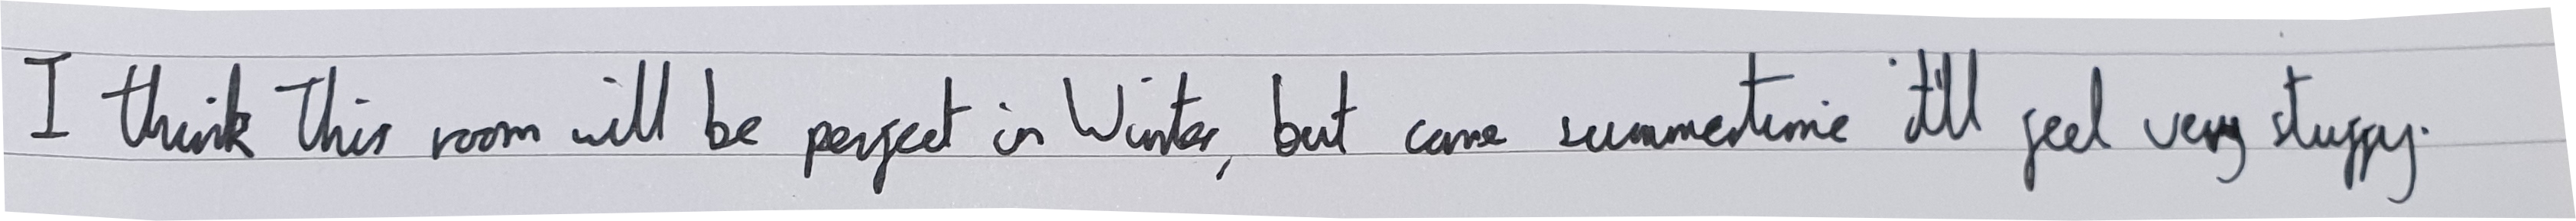 I think this room will be perfect in Winter, but come summertime it'll feel very stuffy.